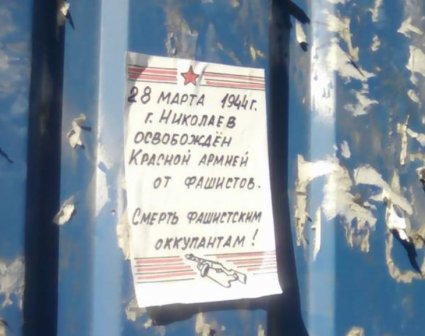 28 МАРТА 1944 г.
г. НИКОЛАЕВ
ОСВОБОЖДЁН
КРАСНОЙ АРМИЕЙ
ОТ ФАШИСТОВ.
СМЕРТЬ ФАШИСТСКИМ
ОККУПАНТАМ!